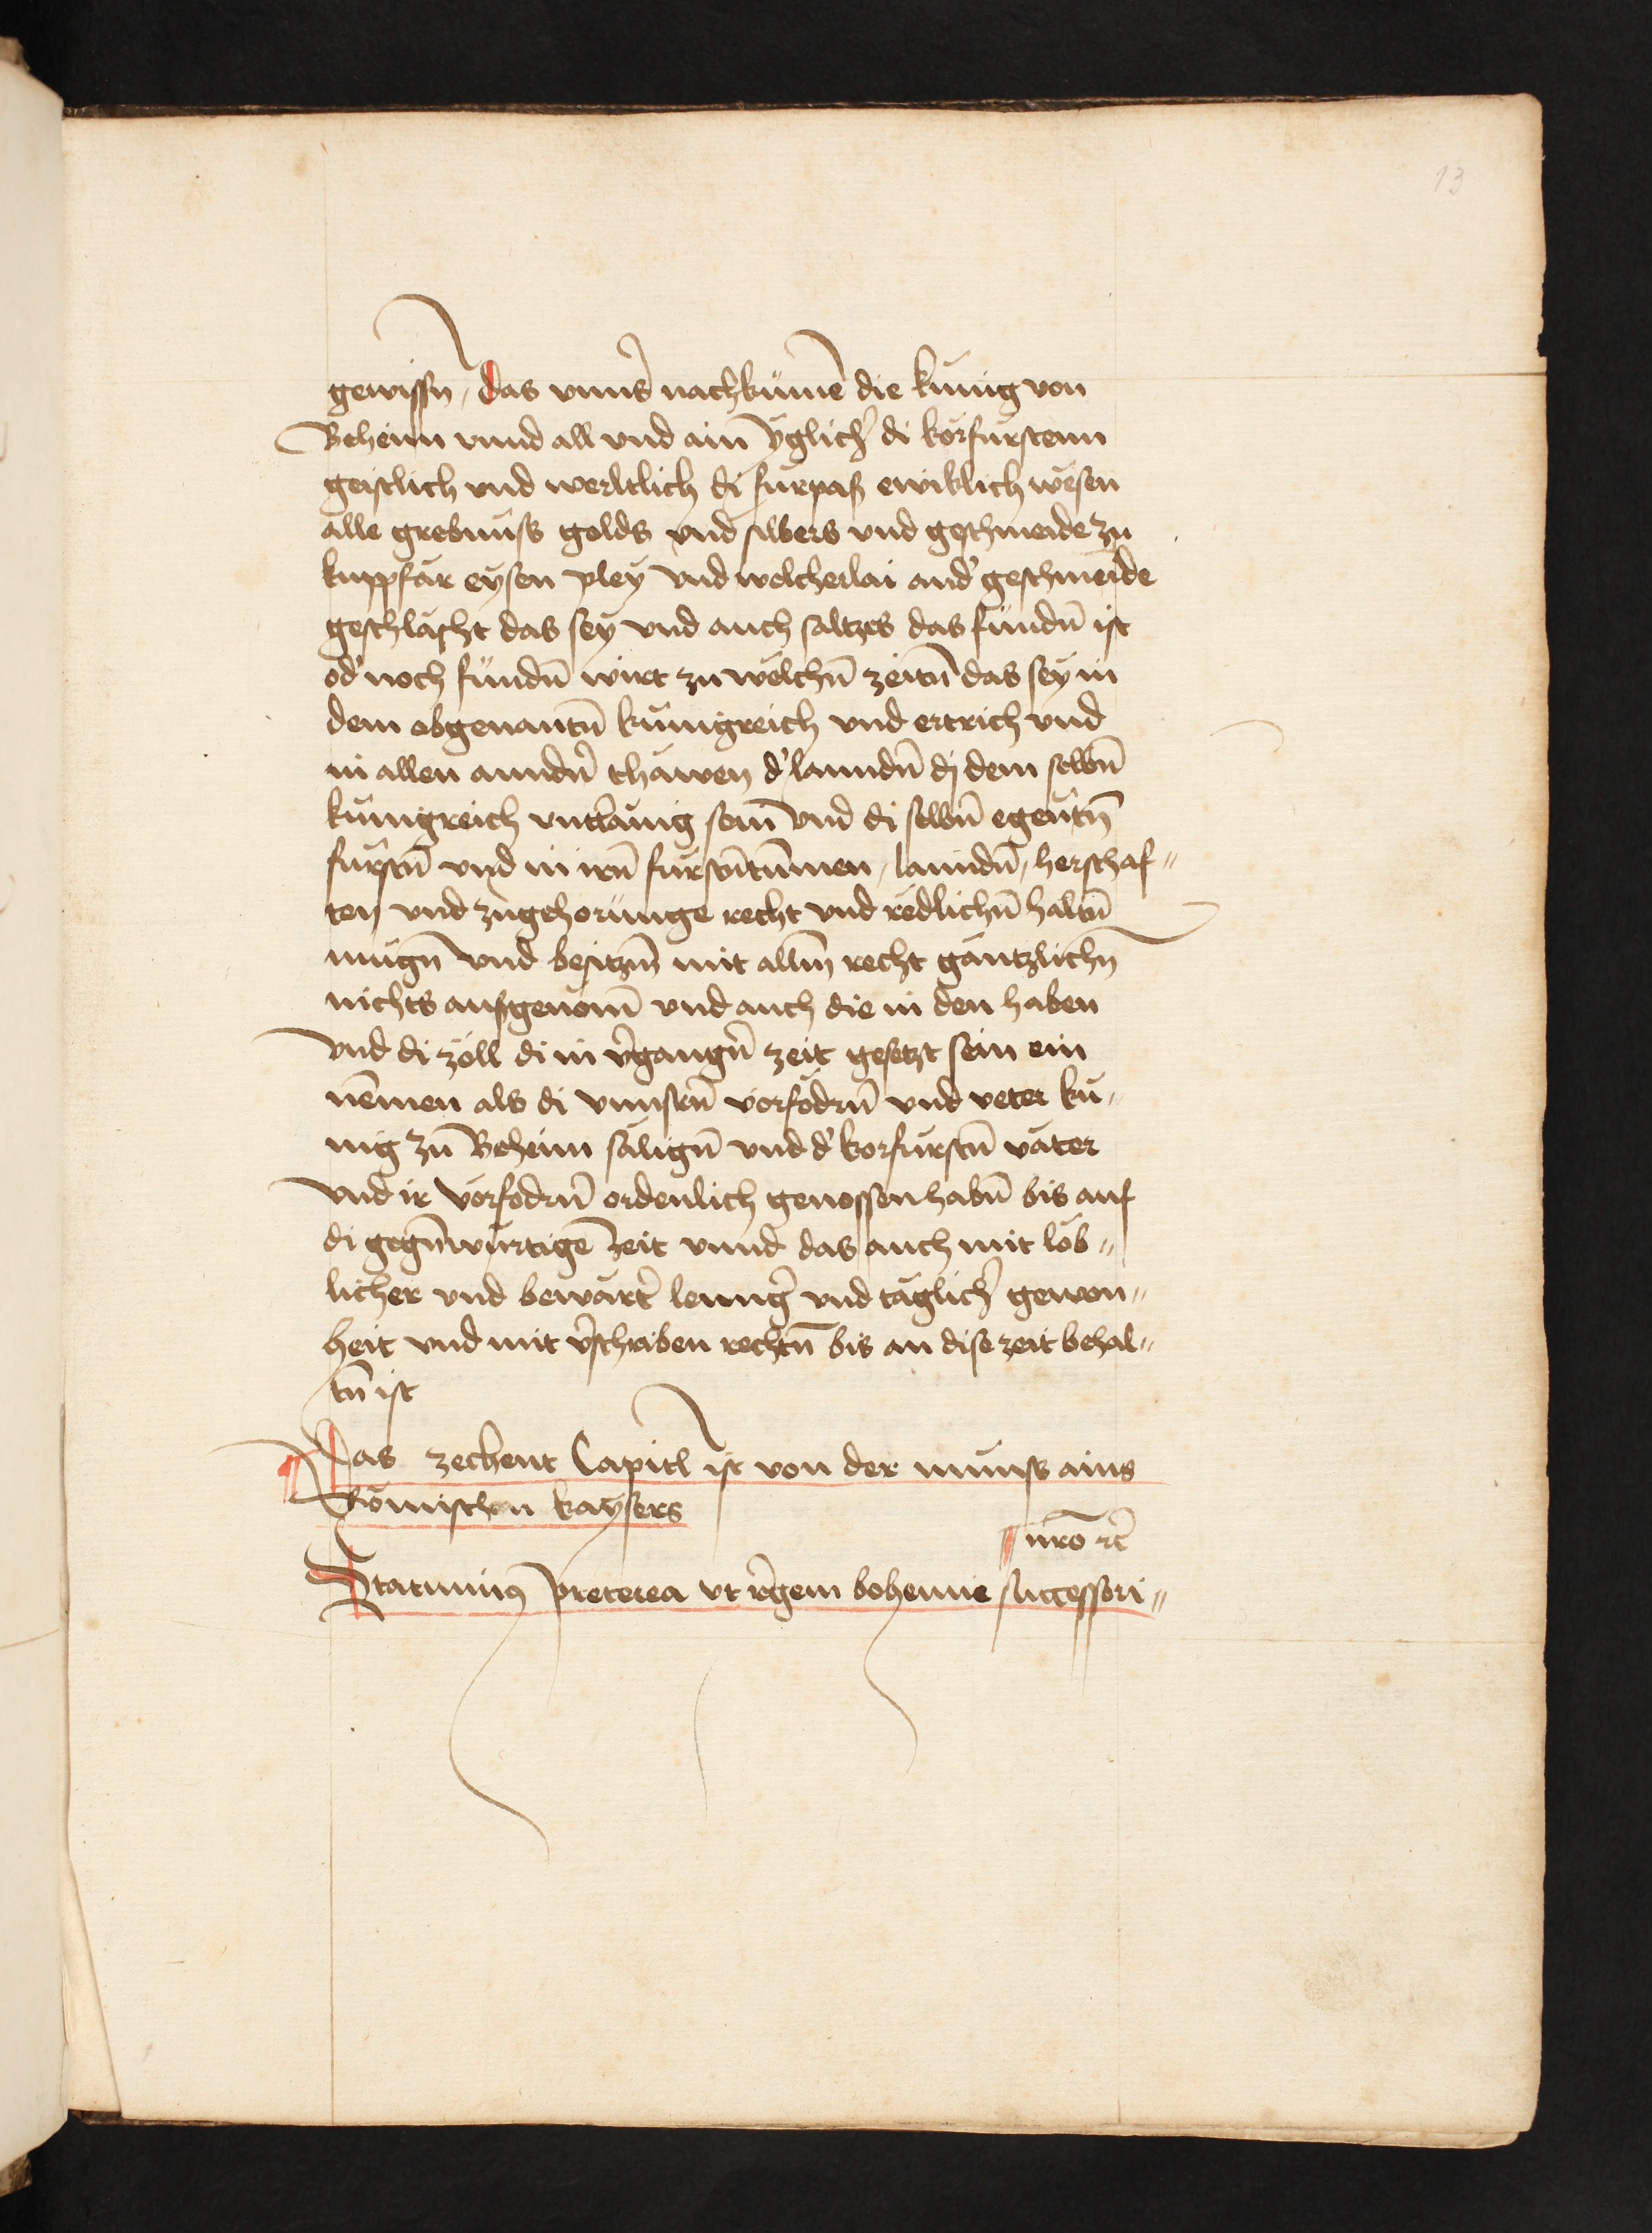 13
gewissn, das vnns̄ nachkümē die kunig von
Beheim vnnd all vnd ain yglichr̄ di korfurstenn
geistlich vnd werltlich di furpaß ewiklich wesen
alle grebnuss golds vnd silbers vnd geschmeide zu
kuppfär eysen pley vnd welcherlai and' geschmeide
geschlächt das sey vnd auch saltzes das fundn̄ ist
od' noch fundn̄ wirt zu welchn̄ zeitn̄ das sey in
dem obgenantn̄ kunigreich vnd ertrich vnd
in allen anndn̄ thawen d' lanndn̄ dj dem selbn̄
kunigreich vnttänig sein vnd di selbn̄ egen̄tn̄
furstn̄ vnd in irn̄ furstn̄tummen, lanndn̄, herschaf„
ten vnd zugehorunge recht vnd redlichn̄ haltn̄
mugn̄ vnd besitzn̄ mit alln̄ recht gäntzlichn̄
nichts aufgenom̄ vnd auch die in den haben
vnd di zöll di in v̄gangn̄ zeit gesetzt sein ein
nēmen als di vnnsrn̄ vorfodrn̄ vnd veter ku„
nig zu Beheim sälign̄ vnd d' korfurstn̄ väter
vnd ir vorfodrn̄ ordenlich genossen habn̄ bis auf
di gegn̄würtigē zeit vnnd das auch mit lob„
licher vnd bewärt' lenng' vnd täglich' gewon„
heit vnd mit v̄schriben rechtn̄ bis an dise zeit behal„
tn̄ ist
Das zechent Capitl ist von der munss ains
Römischen kaysers
nrō rc̄
Statuimus preterea vt r̄gem bohemie successori„